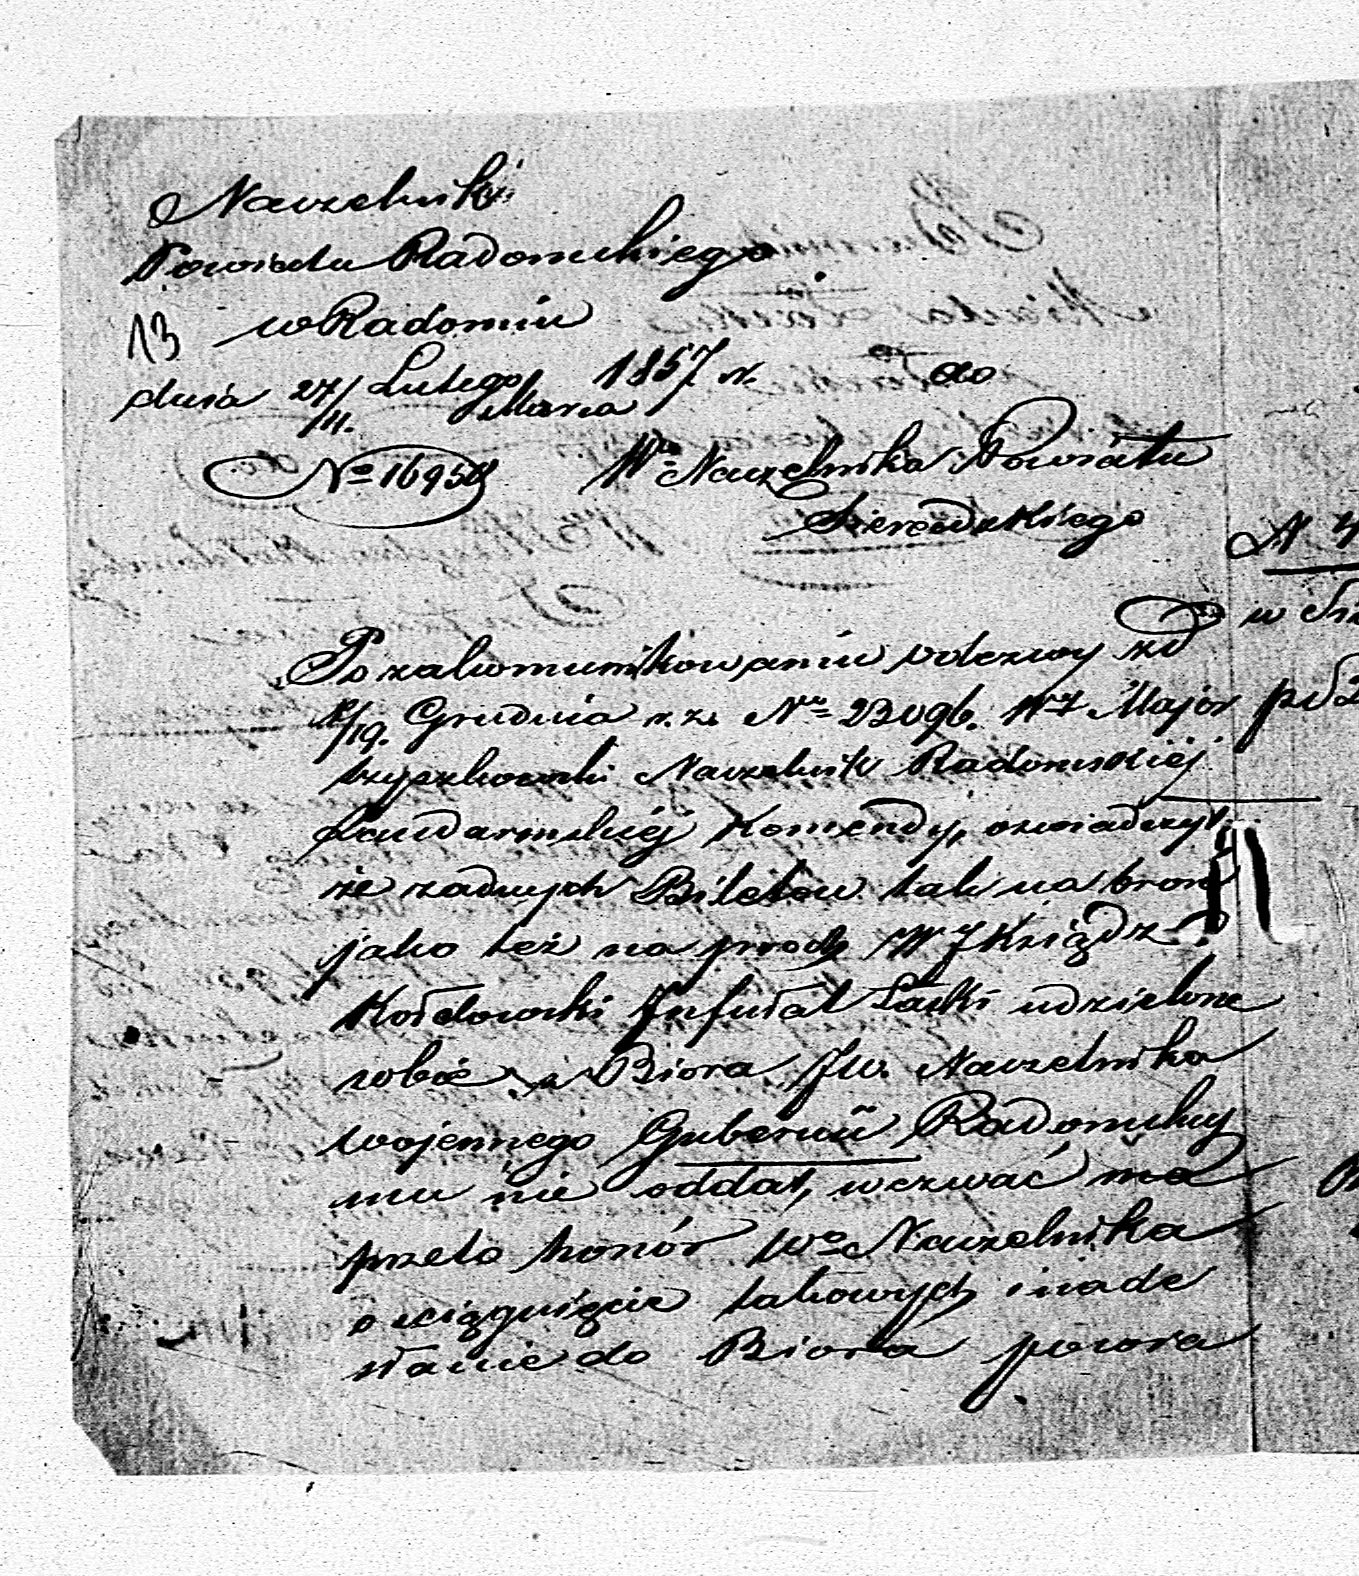 Naczelnik
Powiatu Radomskiego
13 w Radomiu
dnia 27/11. Lutego/Marca 1857 r. do
No 16958
Wo Naczelnika Powiatu
Sieradzkiego
Po zakomunikowaniu odezwy z d
/19. Grudnia r. z. No 23096. WJ Major
Naczelnik Radomskiéj
Żandarmskiéj Komendy, oswiadczył,
że żadnych Biletów tak na broń
jako też na proch WJ Ksiądz
Kosłowski Infułat Łaski udzielone
sobie z Biora JW. Naczelnika
wojennego Gubernii Radomskiy
mu nie oddał, wezwać ma
przeto honór Wo Naczelnika
o ściągnięcie takowych i nade
słanie do Biora powia